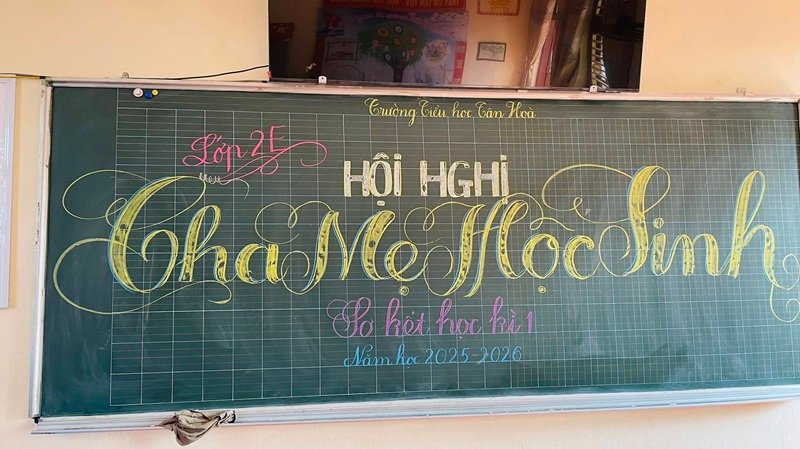 Trường Tiểu học Tân Hoà
Lớp 2E
HỘI NGHỊ
Cha Mẹ Học Sinh
Sơ kết học kì 1
Năm học 2025-2026